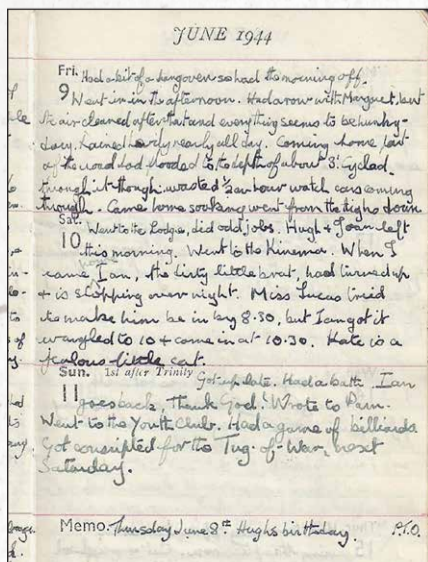 JUNE 1944
Fri. Had a bit of a hangover so had the morning off.
9 Went in in the afternoon. Had a row with Margaret, but
the air cleared after that and everything seems to be hunky-
dory. Rained heavily nearly all day. Coming home part
of the road had flooded to depth of about 3'. Cycled
through it though. wasted ½ an hour watch cars coming
through. Came home soaking went from the thighs down
Sat. Went to the Lodge, did odd jobs. Hugh & Joan left
10 this morning. Went to the Kinema. When I
came Ian, the dirty little brat, had turned up
& is stopping over night. Miss Lucas tried
to make him be in by 8.30, but Ian got it
wrangled to 10 & came in at 10.30. Kate is a
jealous little cat.
Sun. 1st after Trinity Got up late. Had a bath. Ian
11 goes back, Thank God! Wrote to Pam.
Went to the Youth Club. Had a game of billiards
Got conscripted for the Tug-of-War, next
Saturday.
Memo. Thursday June 8th Hughs birthday. P.T.O.